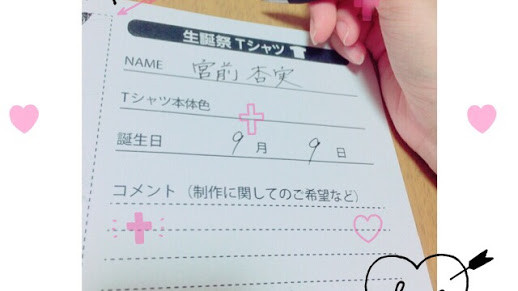 生誕祭Tシャツ
NAME 宮前 杏実
Tシャツ本体色
誕生日 9月 9日
コメント（制作に関してのご希望など）